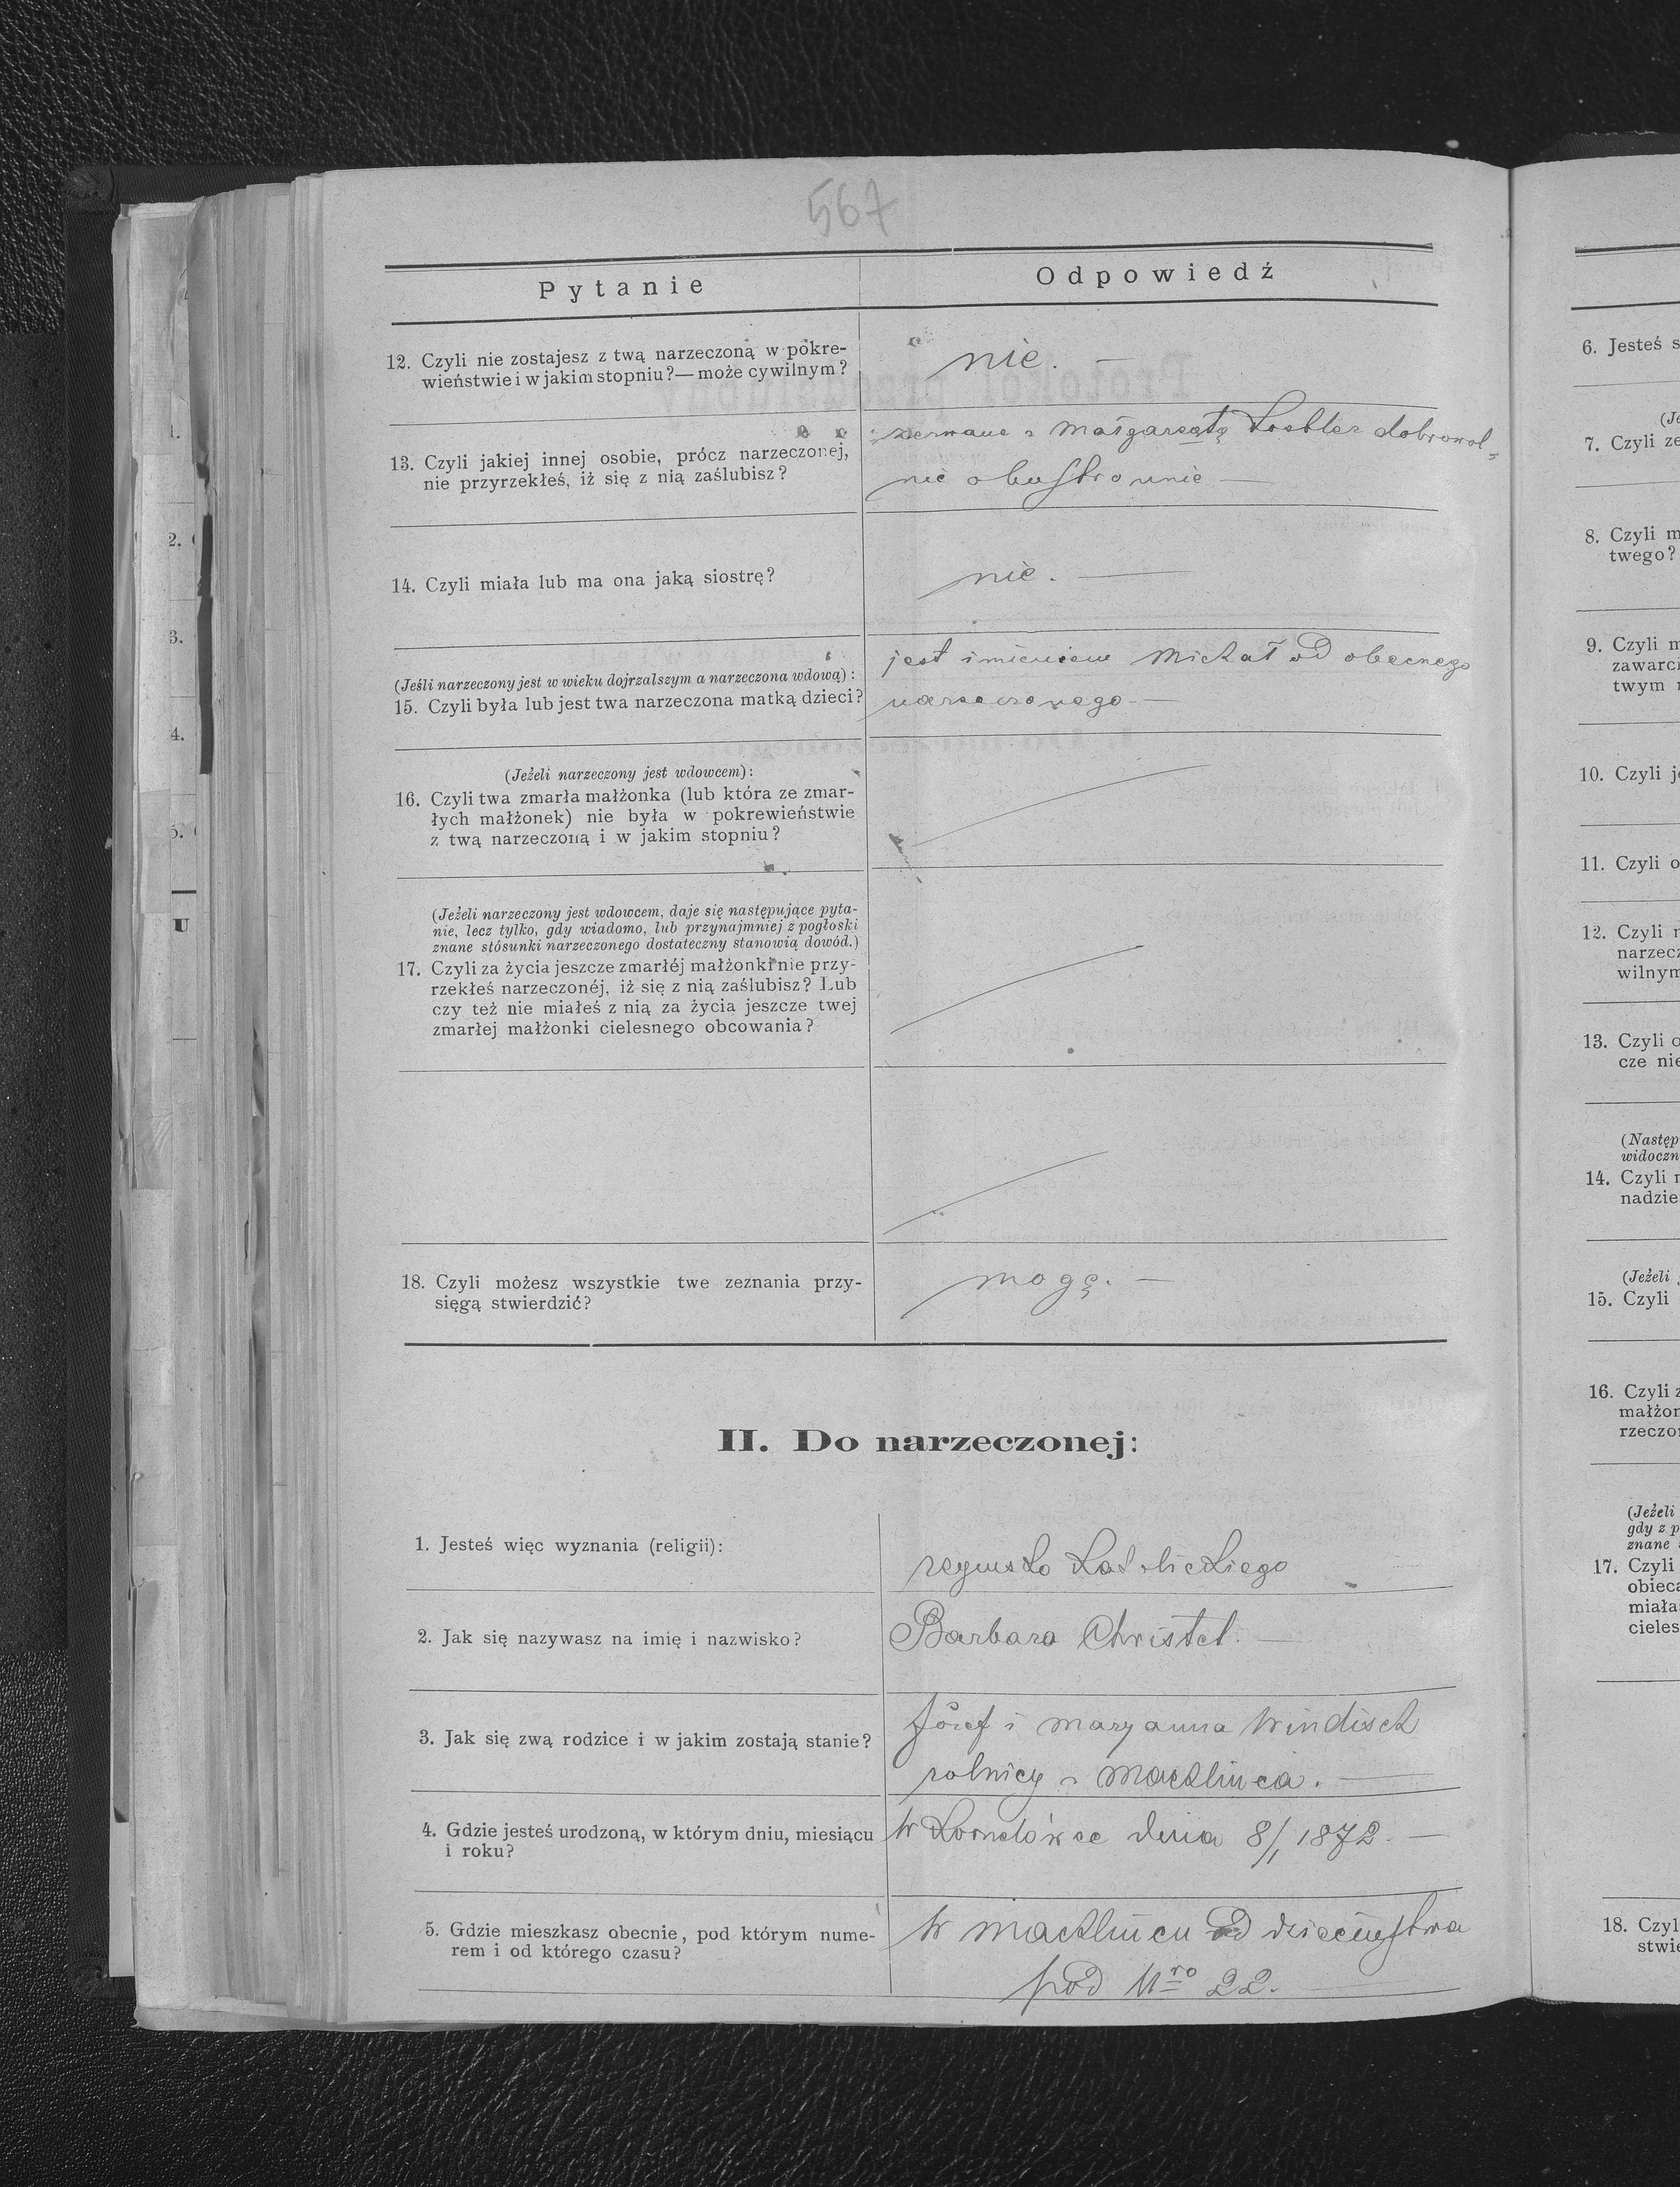 567
Pytanie
Odpowiedź
12. Czyli nie zostajesz z twą narzeczoną w pokre-
wieństwie i w jakim stopniu?— może cywilnym?
nie. —
13. Czyli jakiej innej osobie, prócz narzeczonej,
nie przyrzekłeś, iż się z nią zaślubisz?
Małgarzatą dobrowol=
nie obustronnie —
14. Czyli miała lub ma ona jaką siostrę?
nie. —
(Jeśli narzeczony jest w wieku dojrzalszym a narzeczona wdową):
15. Czyli była lub jest twa narzeczona matką dzieci?
jest imieniem Michał od obecnego
narzeczonego —
(Jeżeli narzeczony jest wdowcem):
16. Czyli twa zmarła małżonka (lub która ze zmar-
łych małżonek) nie była w pokrewieństwie
z twą narzeczoną i w jakim stopniu?
(Jeżeli narzeczony jest wdowcem, daje się następujące pyta-
nie, lecz tylko, gdy wiadomo, lub przynajmniej z pogłoski
znane stósunki narzeczonego dostateczny stanowią dowód.)
17. Czyli za życia jeszcze zmarłéj małżonki nie przy-
rzekłeś narzeczonéj, iż się z nią zaślubisz? Lub
czy też nie miałeś z nią za życia jeszcze twej
zmarłej małżonki cielesnego obcowania?
18. Czyli możesz wszystkie twe zeznania przy-
sięgą stwierdzić?
mogę. —
II. Do narzeczonej:
1. Jesteś więc wyznania (religii):
rzymsko katolickiego
2. Jak się nazywasz na imię i nazwisko?
Barbara Christel. —
3. Jak się zwą rodzice i w jakim zostają stanie?
Józef i Maryanna Windisch
rolnicy z Machlińca. —
4. Gdzie jesteś urodzoną, w którym dniu, miesiącu
i roku?
W Kornelówce dnia 8/1 1872. —
5. Gdzie mieszkasz obecnie, pod którym nume-
rem i od którego czasu?
W Machlińcu od dzieciństwa
pod Nro 22. —
1.
2.
3.
4.
5.
U
6. Jesteś s
(Je
7. Czyli ze
8. Czyli m
twego?
9. Czyli m
zawarci
twym
10. Czyli j
11. Czyli o
12. Czyli
narzec
wilnym
13. Czyli o
cze nie
(Następ
widoczn
14. Czyli
nadzie
(Jeżeli
15. Czyli
16. Czyli z
małżon
rzeczo
(Jeżeli
gdy z p
znane
17. Czyli
obieca
miała
cieles
18. Czyl
stwie